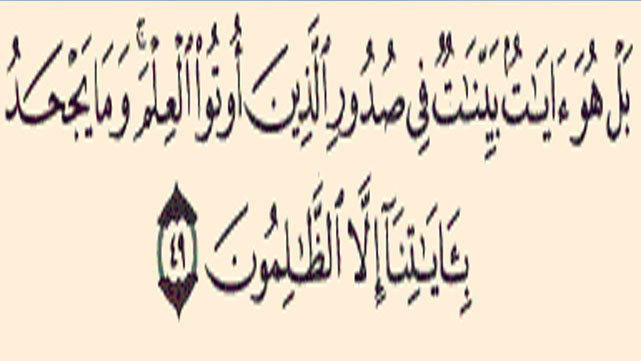 بَلْ هُوَ ءَايَٰتٌۢ بَيِّنَٰتٌ فِى صُدُورِ ٱلَّذِينَ أُوتُوا۟ ٱلْعِلْمَ ۚ وَمَا يَجْحَدُ
بِـَٔايَٰتِنَآ إِلَّا ٱلظَّٰلِمُونَ ٤٩